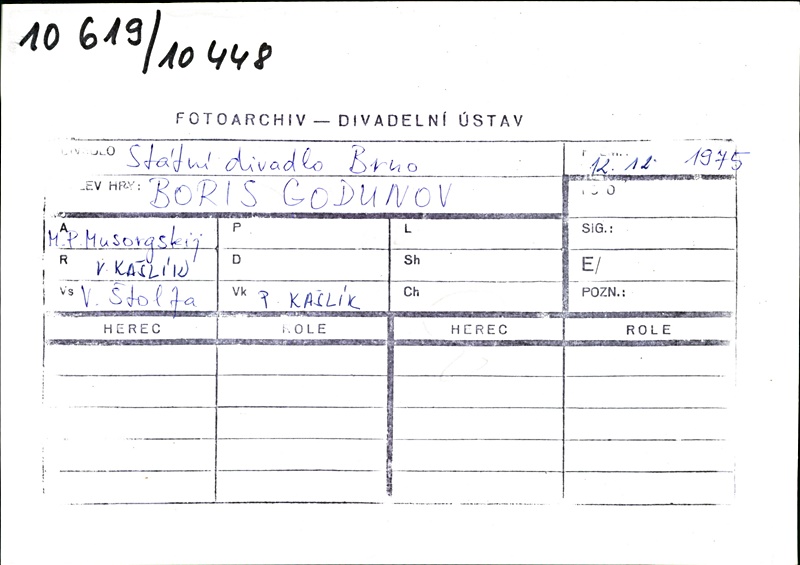 10 619/10 448
FOTOARCHIV — DIVADELNÍ ÚSTAV
Státní divadlo Brno 12. 12. 1975
BORIS GODUNOV
A M.P. Musorgskij P L SIG.:
R V. KAŠLÍK D Sh E/
Vs V. Štolfa Vk P. KAŠLÍK Ch POZN.:
HEREC ROLE HEREC ROLE